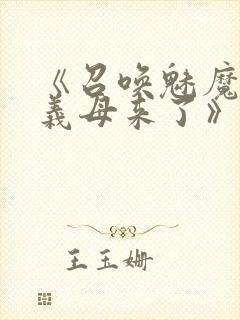 《召唤魅魔
義母来了》
王玉姗